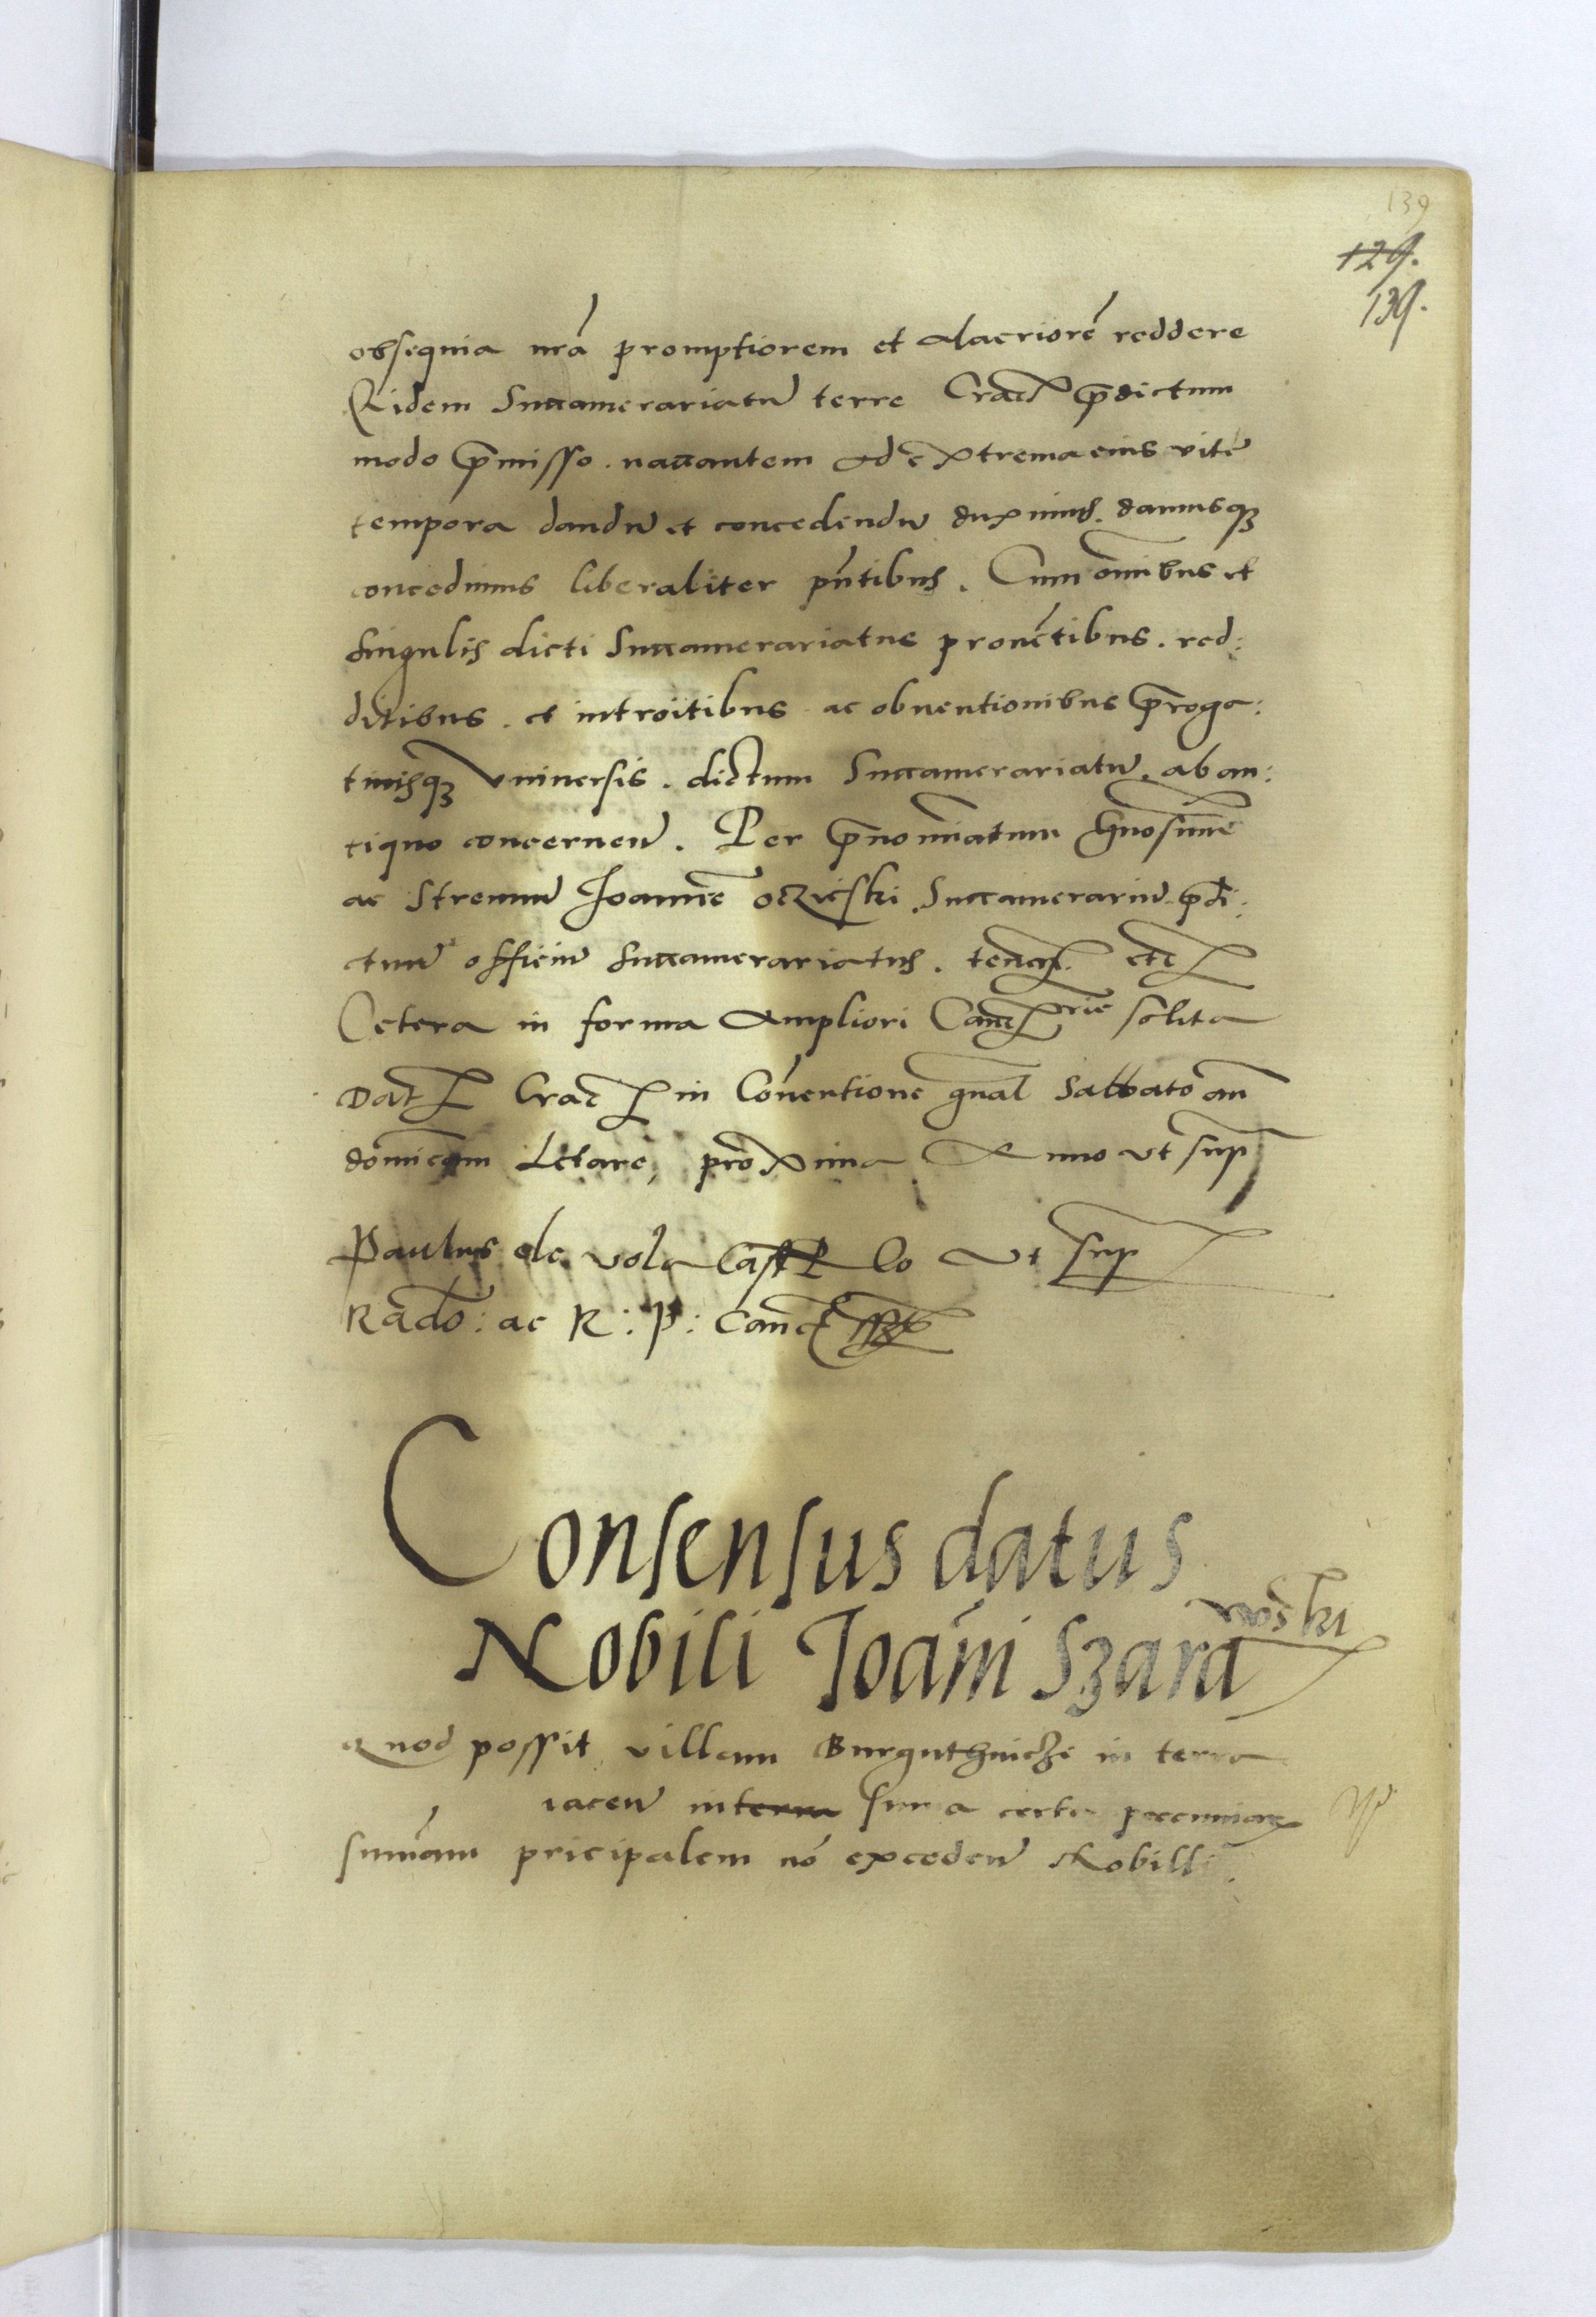 139
129.
139.
obsequia nrã promptiorem et alacriorẽ reddere
Eidem Succamerariatũ terre Crac predictum
modo premisso. vaccantem ad extrema eius vitẽ
tempora dandũ et concedendũ duximus. damusq3
concedimus liberaliter pñtibus. Cum omĩbus et
singulis dicti Succamerariatus prouẽtibus. red:
ditibus. et introitibus ac obuentionibus preroga:
tiuisq3 vniuersis. dictum Succamerariatũ. ab an:
tiquo concerneñ. Per prenomĩatum Gnosum̃
ac Strenuũ Joannẽ oczieski Succamerariũ predi:
ctum officiũ succamerariatus. teneñ etc
Cetera in forma ampliori Cancrie solita
Dat Crac in Cõuentione gnal Sabbato añ
domĩcam Letare, proxima Anno vt sup
Paulus de vola Cast Co vt sup
Rado: ac R: P: Canc sst
Consensus datus
Nobili Joãni Szara
wski
Quod possit villam Burguthnicze in terra
iaceñ in terra suma certa pecuniar
sum̃am pricipalem nõ excedeñ Nobilli